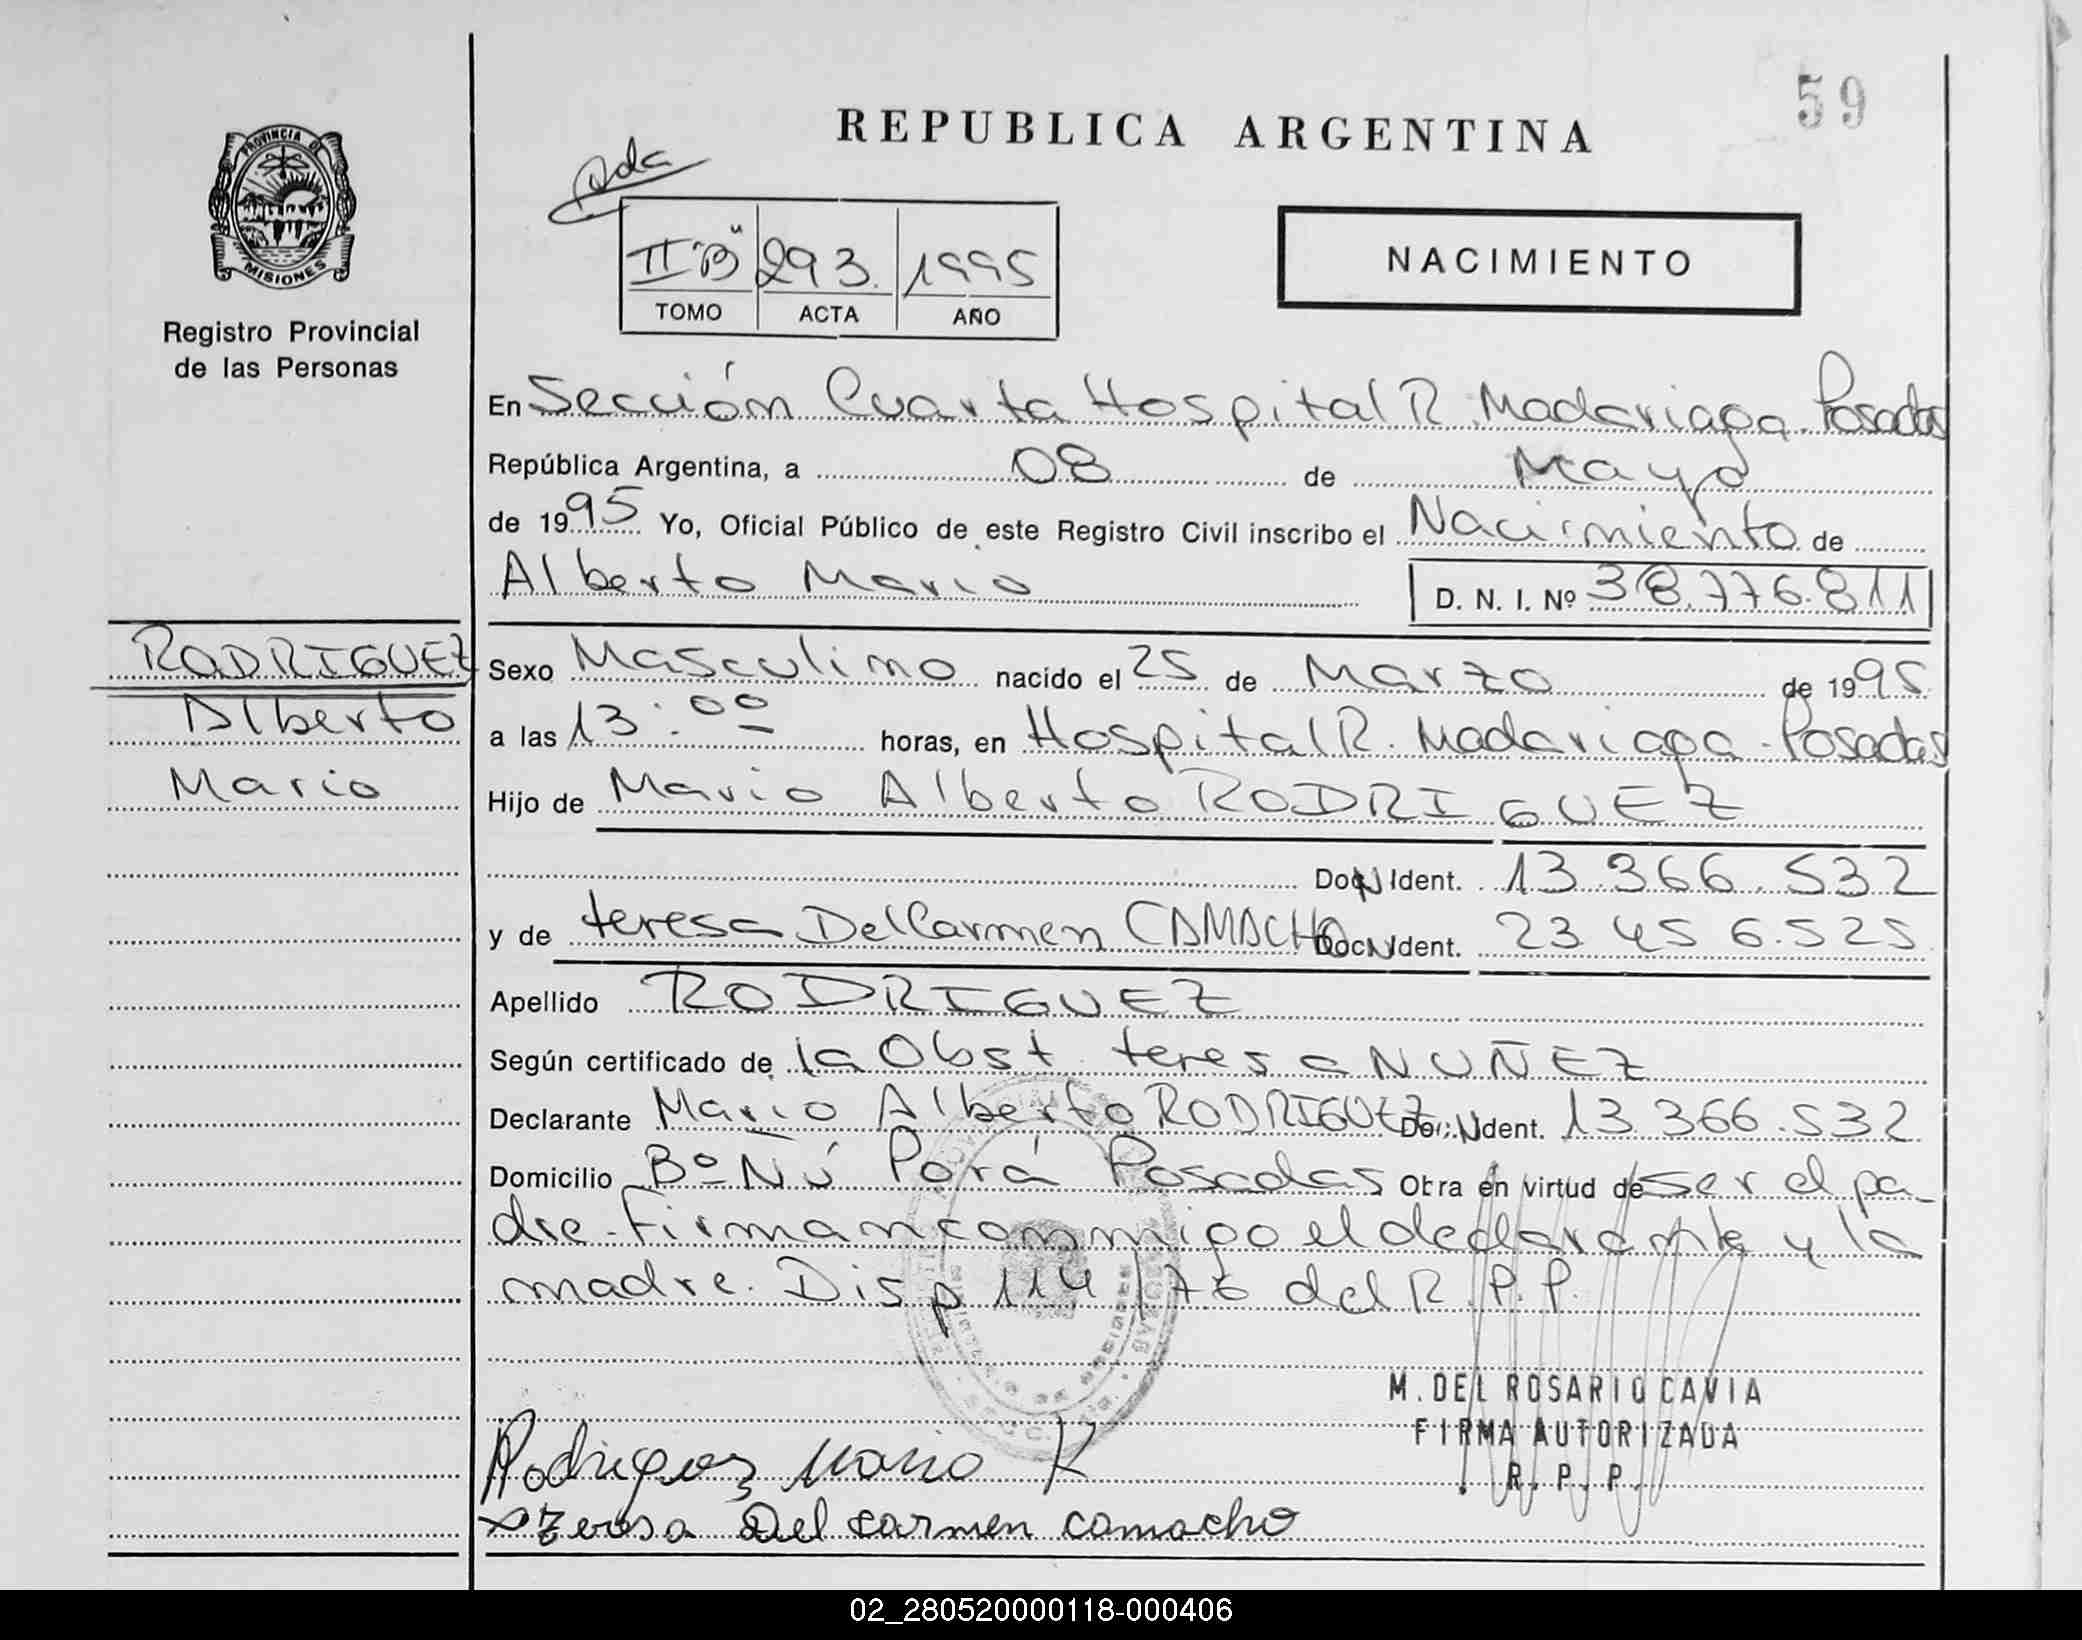 59
REPUBLICA ARGENTINA
PROVINCIA DE
MISIONES
Registro Provincial
de las Personas
II "B" 293. 1995
TOMO ACTA AÑO
NACIMIENTO
En Sección Cuarta Hospital R. Madariaga - Posadas
República Argentina, a 08 de Mayo
de 1995 Yo, Oficial Público de este Registro Civil inscribo el Nacimiento de
Alberto Mario D. N. I. Nº 38.776.811
RODRIGUEZ
Alberto
Mario
Sexo Masculino nacido el 25 de Marzo de 1995
a las 13:00 horas, en Hospital R. Madariaga - Posadas
Hijo de Mario Alberto RODRIGUEZ
Doc. N Ident. 13.366.532
y de teresa Del Carmen CAMACHO Doc. N Ident. 23 456.525
Apellido RODRIGUEZ
Según certificado de la Obst. teresa NUÑEZ
Declarante Mario Alberto RODRIGUEZ Doc. N Ident. 13 366.532
Domicilio Bº Ñú Porá Posadas Obra en virtud de ser el pa-
dre - Firman conmigo el declarante y la
madre. Disp 114/76 del R.P.P.
M. DEL ROSARIO CAVIA
FIRMA AUTORIZADA
R. P. P.
Rodriguez Mario
Teresa Del carmen camacho
02_280520000118-000406